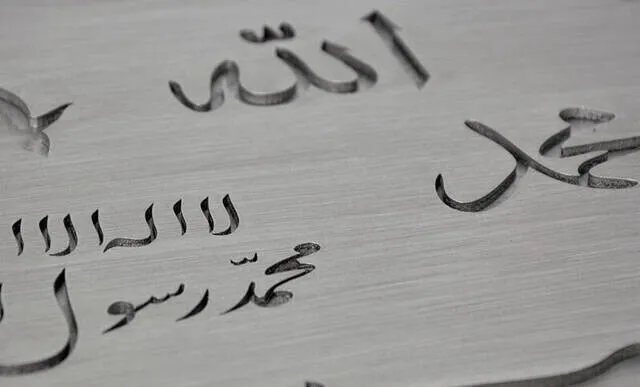 الله
محمد
لا اله الا
محمد رسول